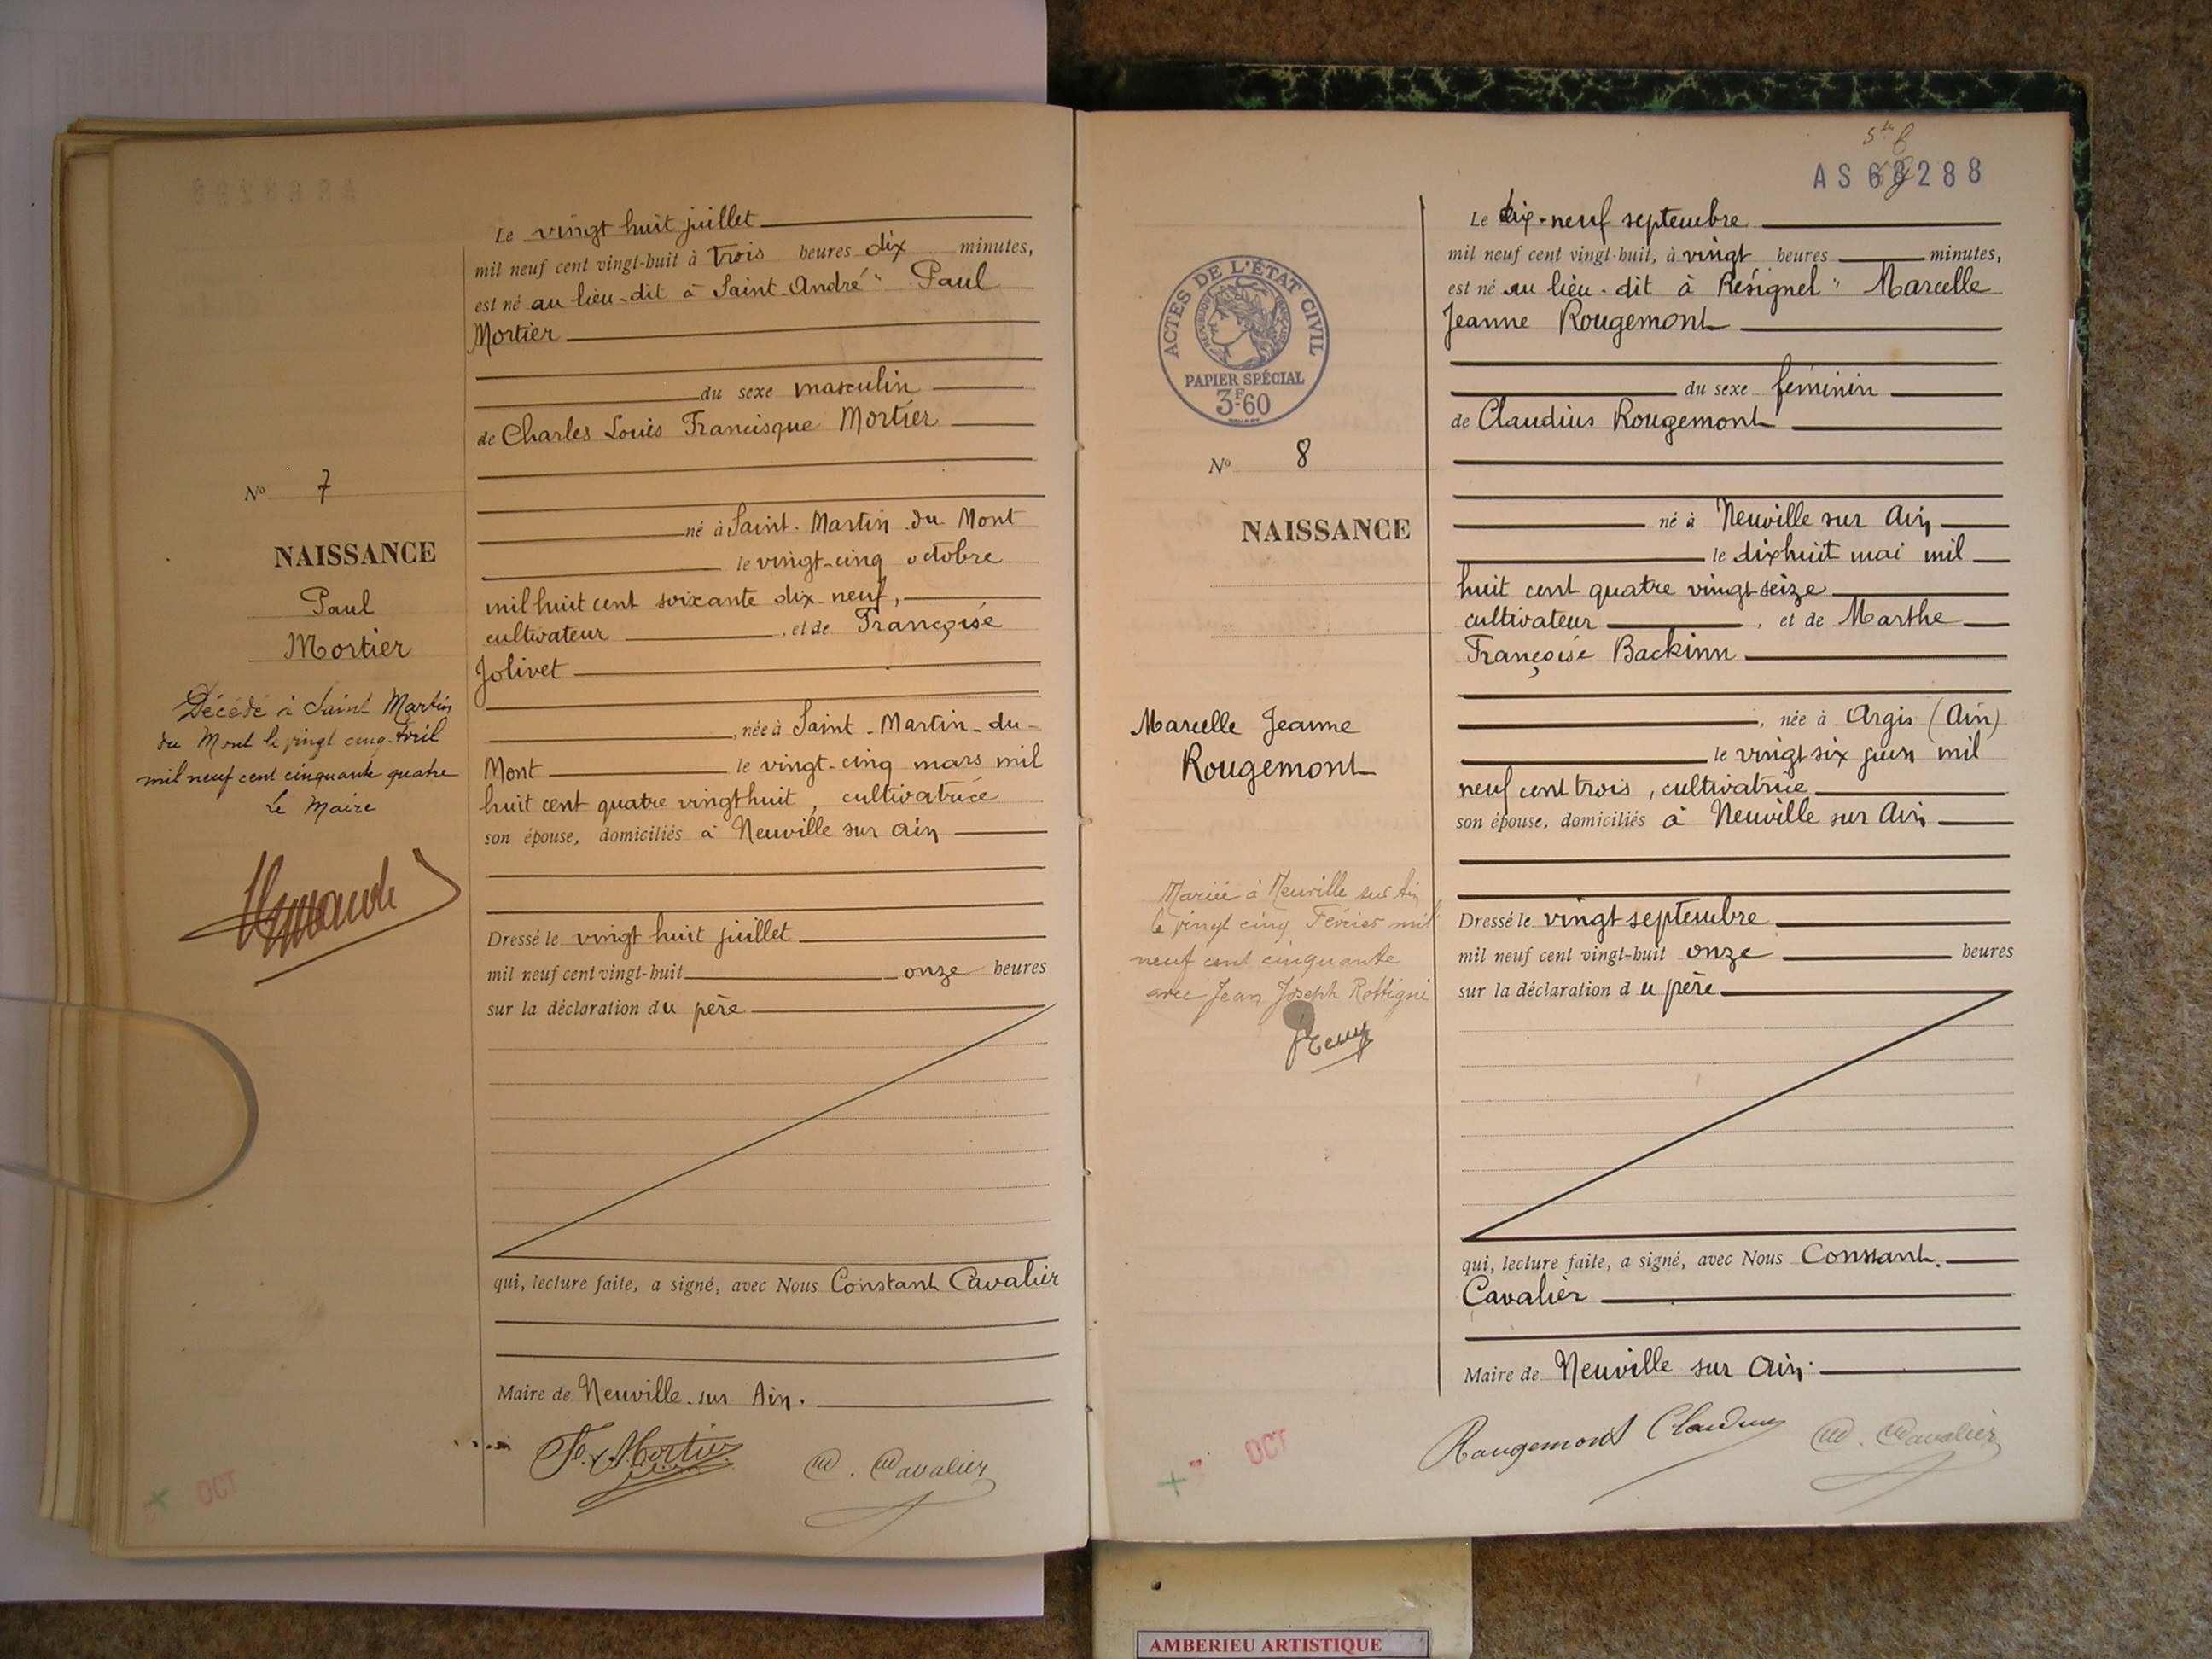 Le vingt huit juillet
mil neuf cent vingt-huit à trois heures dix minutes,
est né au lieu-dit à Saint-André" Paul
Mortier
du sexe masculin
de Charles Louis Francisque Mortier
né à Saint-Martin du Mont
le vingt-cinq octobre
mil huit cent soixante dix-neuf,
cultivateur , et de Françoise
Jolivet
, née à Saint-Martin-du-
Mont le vingt-cinq mars mil
huit cent quatre vingt huit, cultivatrice
son épouse, domiciliés à Neuville sur Ain
Dressé le vingt huit juillet
mil neuf cent vingt-huit onze heures
sur la déclaration du père
qui, lecture faite, a signé, avec Nous Constant Cavalier
Maire de Neuville-sur Ain.
Mortier
Cavalier
No 7
NAISSANCE
Paul
Mortier
Décédé à Saint Martin
du Mont le vingt cinq Avril
mil neuf cent cinquante quatre
Le Maire
OCT
AS 68288
ACTES DE L'ÉTAT CIVIL
RÉPUBLIQUE FRANÇAISE
PAPIER SPÉCIAL
3F60
No 8
NAISSANCE
Marcelle Jeanne
Rougemont
Mariée à Neuville sur Ain
le vingt cinq Février mil
neuf cent cinquante
avec Jean Joseph
OCT
Le dix-neuf septembre
mil neuf cent vingt-huit, à vingt heures minutes,
est né au lieu-dit à Résignel" Marcelle
Jeanne Rougemont
du sexe féminin
de Claudius Rougemont
né à Neuville sur Ain
le dix huit mai mil
huit cent quatre vingt seize
cultivateur , et de Marthe
Françoise Backinn
, née à Argis (Ain)
le vingt six juin mil
neuf cent trois, cultivatrice
son épouse, domiciliés à Neuville sur Ain
Dressé le vingt septembre
mil neuf cent vingt-huit onze heures
sur la déclaration du père
qui, lecture faite, a signé, avec Nous Constant
Cavalier
Maire de Neuville sur Ain.
Rougemont Claudius
Cavalier
AMBERIEU ARTISTIQUE